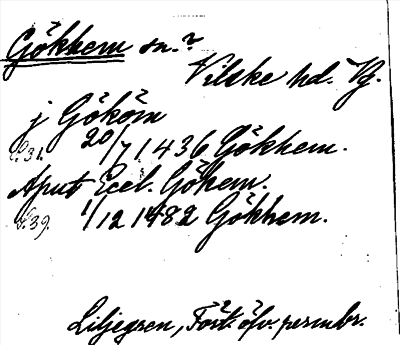 Gökhem sn.?
Vilske hd. Vg.
j Gököm
s. 31. 20/7 1436 Gökhem.
Aput Eccl. Gökem.
s. 39. 1/12 1482 Gökhem.
Liljegren, Fört. öfv. permbr.